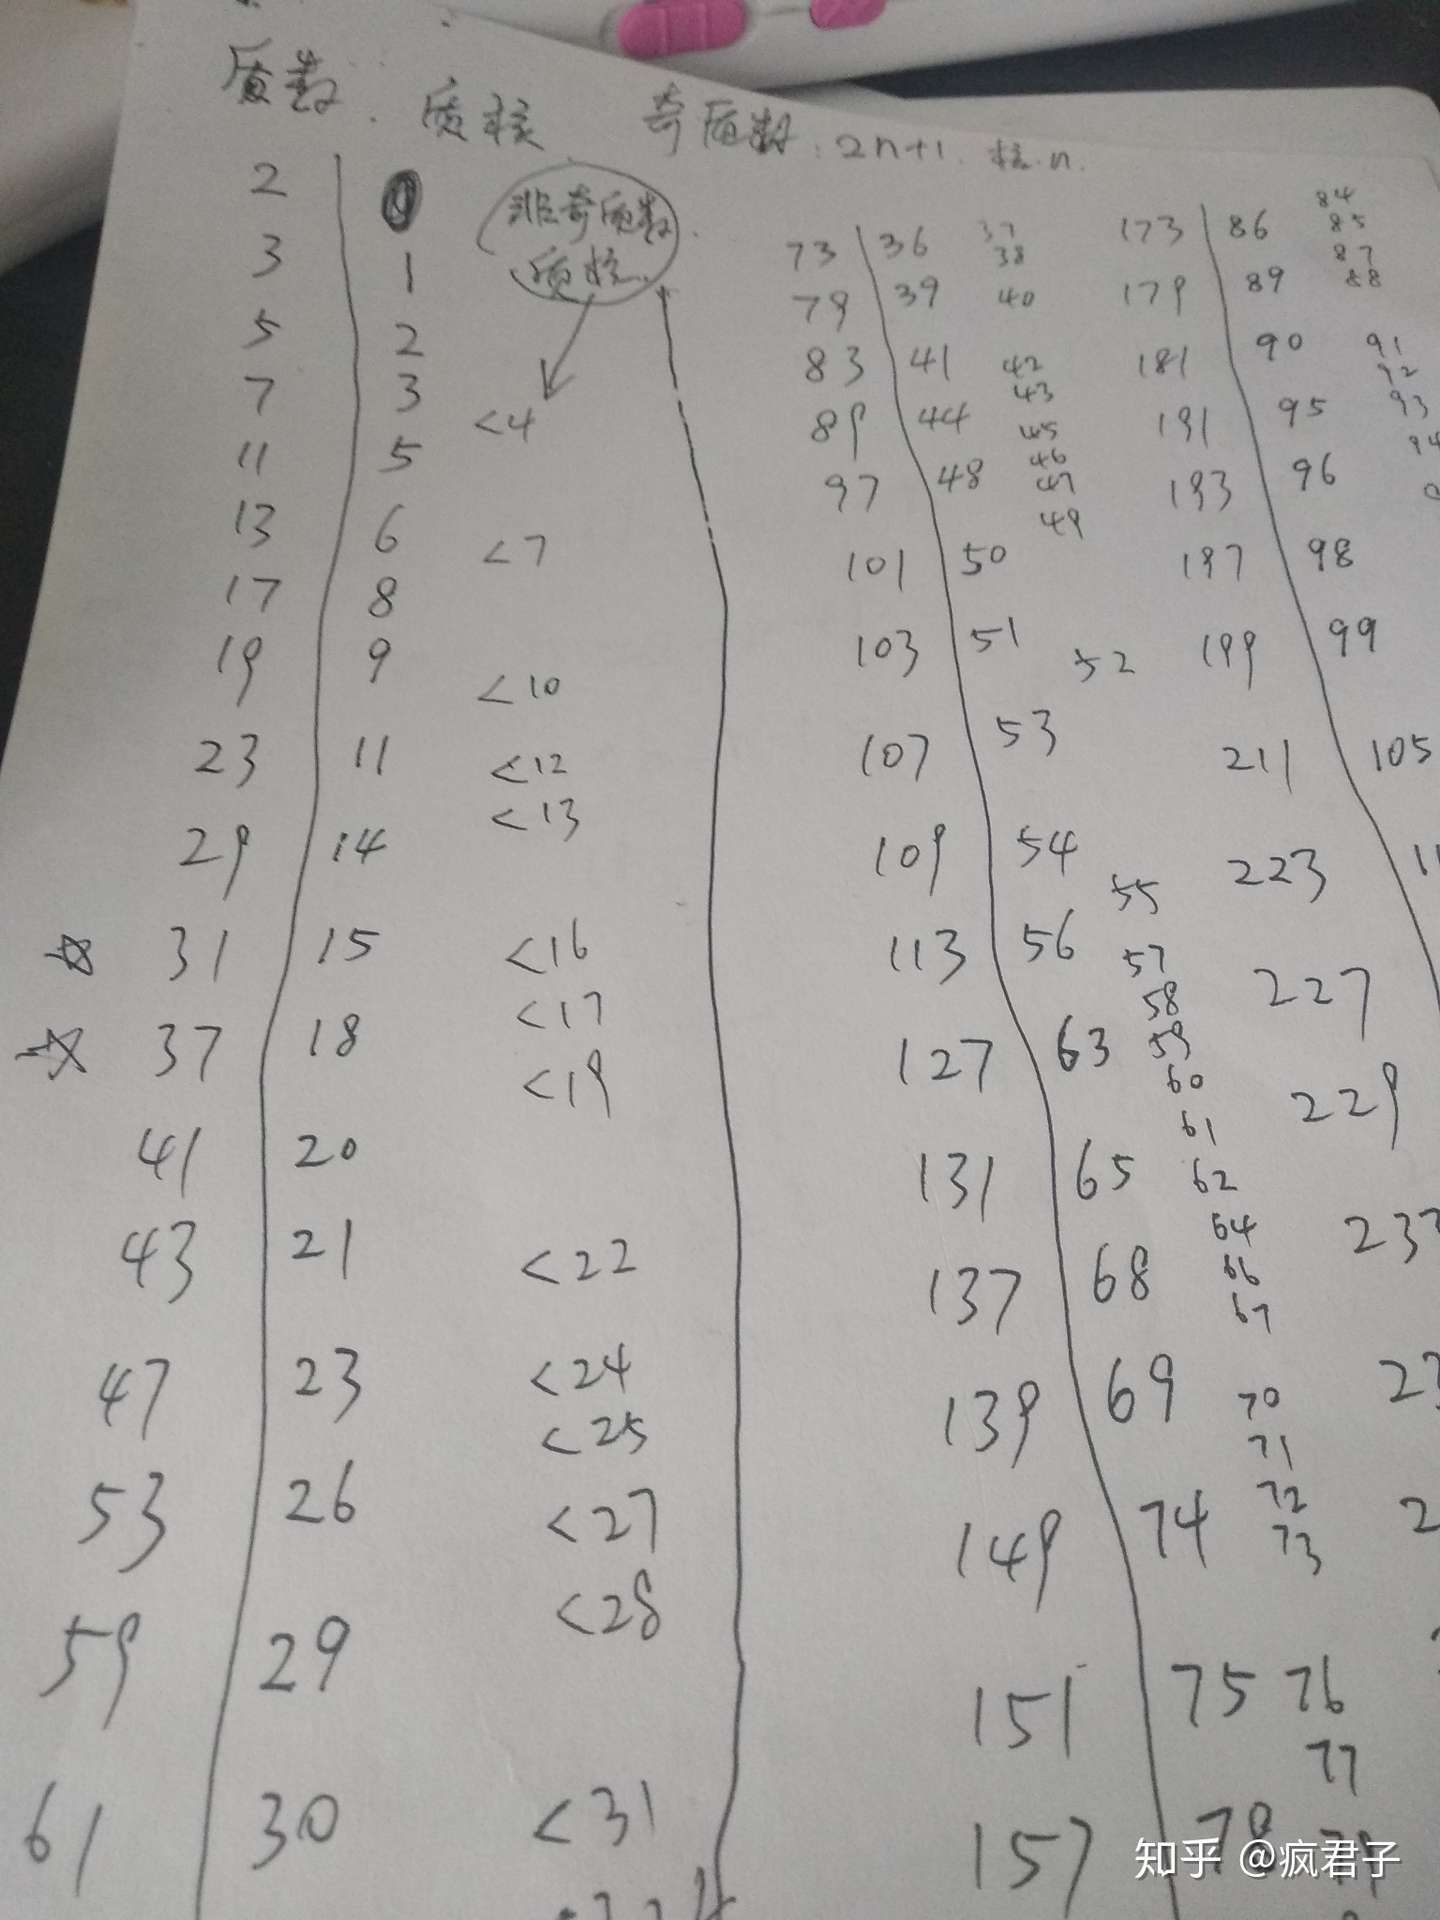 质数. 质核 奇质数:2n+1. 核.n.
非奇质数
质核
2
3 1
5 2
7 3 <4
11 5
13 6 <7
17 8
19 9 <10
23 11 <12
<13
29 14
31 15 <16
<17
37 18 <19
41 20
43 21 <22
47 23 <24
<25
53 26 <27
<28
59 29
61 30 <31
73 36 37
38
79 39 40
83 41 42
43
89 44 45
46
47
97 48 49
101 50
103 51 52
107 53
109 54 55
113 56 57
58
59
60
61
127 63 62
131 65 64
66
67
137 68
139 69 70
71
72
73
149 74
151 75 76
77
157 78 79
173 86 84
85
87
88
179 89
181 90 91
92
93
94
191 95
193 96
197 98
199 99
211 105
223
227
229
知乎 @疯君子